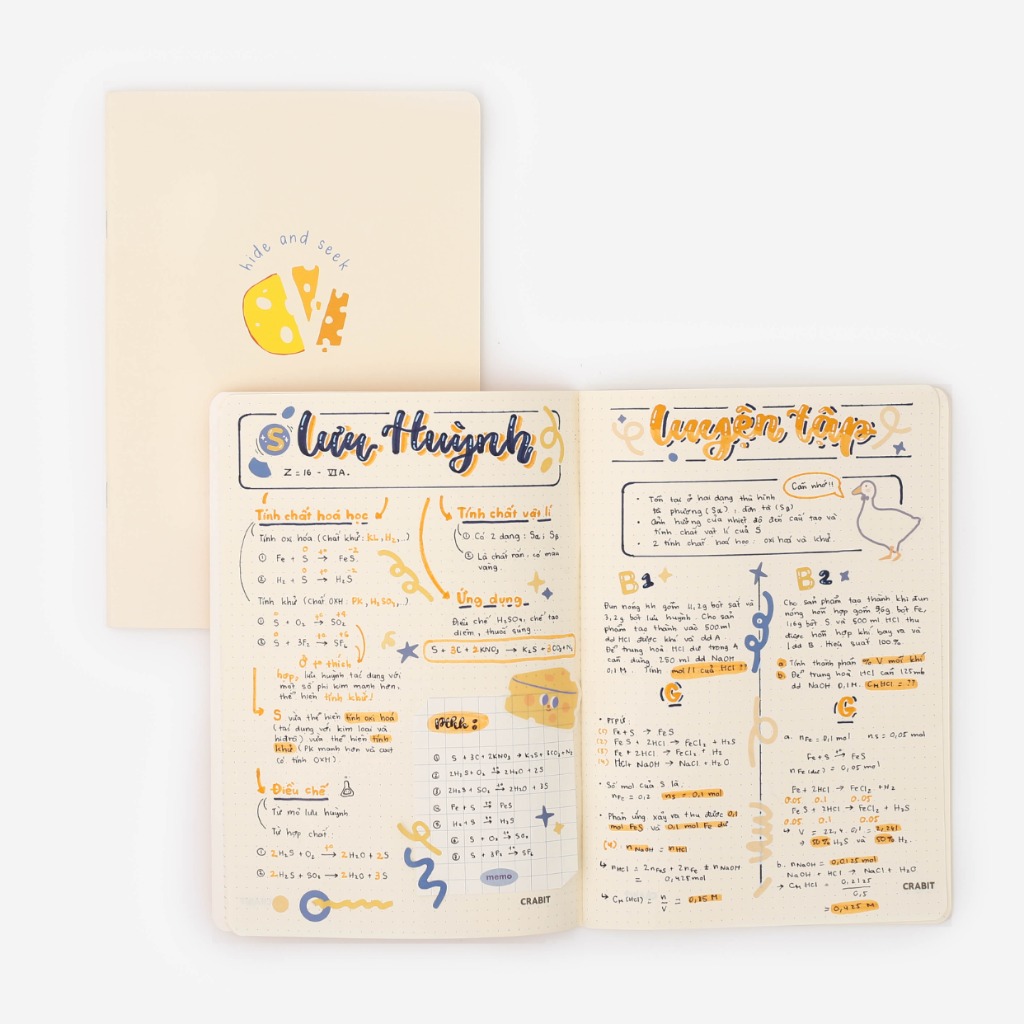 hide and seek
S Lưu Huỳnh
Z = 16 - VIA.
Tính chất hoá học
Tính oxi hóa (Chất khử: KL, H₂,...)
0 0 -2
① Fe + S t° → FeS.
0 -2
② H₂ + S t° → H₂S
Tính khử (Chất OXH: PK, H₂SO₄,...)
0 +4
① S + O₂ t° → SO₂
0 +6
② S + 3F₂ t° → SF₆
Ở t° thích
hợp, lưu huỳnh tác dụng với
một số phi kim mạnh hơn,
thể hiện tính khử!
S vừa thể hiện tính oxi hoá
(tác dụng với kim loại và
hiđro) vừa thể hiện tính
khử (PK mạnh hơn và chất
có tính OXH).
Điều chế
Từ mỏ lưu huỳnh
Từ hợp chất:
① 2H₂S + O₂ t° → 2H₂O + 2S
② 2H₂S + SO₂ → 2H₂O + 3S
Tính chất vật lí
① Có 2 dạng: Sα, Sβ
② Là chất rắn, có màu
vàng.
Ứng dụng
Điều chế H₂SO₄, chế tạo
diêm, thuốc súng...
S + 3C + 2KNO₃ → K₂S + 3CO₂+N₂
Pthh:
① S + 3C + 2KNO₃ → K₂S + 3CO₂+N₂
② 2H₂S + O₂ t° → 2H₂O + 2S
③ 2H₂S + SO₂ t° → 2H₂O + 3S
④ Fe + S t° → FeS
⑤ H₂ + S t° → H₂S
⑥ S + O₂ t° → SO₂
⑦ S + 3F₂ t° → SF₆
memo
CRABIT
Luyện tập
Cần nhớ!!
• Tồn tại ở hai dạng thù hình
tà phương (Sα), đơn tà (Sβ)
• Ảnh hưởng của nhiệt độ đến cấu tạo và
tính chất vật lí của S
• 2 tính chất hoá học: oxi hoá và khử.
B1
Đun nóng hh gồm 11,2g bột sắt và
3,2g bột lưu huỳnh. Cho sản
phẩm tạo thành vào 500ml
dd HCl được khí và dd A
Để trung hoà HCl dư trong A
cần dùng 250 ml dd NaOH
0,1M. Tính mol/l của HCl ??
G
• PTPƯ:
(1) Fe + S → FeS
(2) FeS + 2HCl → FeCl₂ + H₂S
(3) Fe + 2HCl → FeCl₂ + H₂
(4) HCl + NaOH → NaCl + H₂O
• Số mol của S là:
nFe = 0,2 nS = 0,1 mol
• Phản ứng xảy ra thu được 0,1
mol FeS và 0,1 mol Fe dư
(4): nNaOH = nHCl
↳ nHCl = 2nFeS + 2nFe + nNaOH
= 0,425mol
↳ CM(HCl) = n/V = 0,85 M
B2
Cho sản phẩm tạo thành khi đun
nóng hỗn hợp gồm 56g bột Fe,
1,6g bột S vào 500 ml HCl thu
được hỗn hợp khí bay ra và
1 dd B. Hiệu suất 100%
a Tính thành phần % V mỗi khí
b. Để trung hoà HCl cần 125mb
dd NaOH 0,1M. CM HCl = ??
G
a. nFe = 0,1 mol nS = 0,05 mol
Fe + S t° → FeS
nFe (dư) = 0,05 mol
Fe + 2HCl → FeCl₂ + H₂
0.05 0.1 0.05
FeS + 2HCl → FeCl₂ + H₂S
0.05 0.1 0.05
↳ V = 22,4 . 0,1 = 2,24l
→ 50% H₂S và 50% H₂.
b. nNaOH = 0,0125 mol
NaOH + HCl → NaCl + H₂O
→ CM HCl = 0,2125
0,5
= 0,425 M
CRABIT